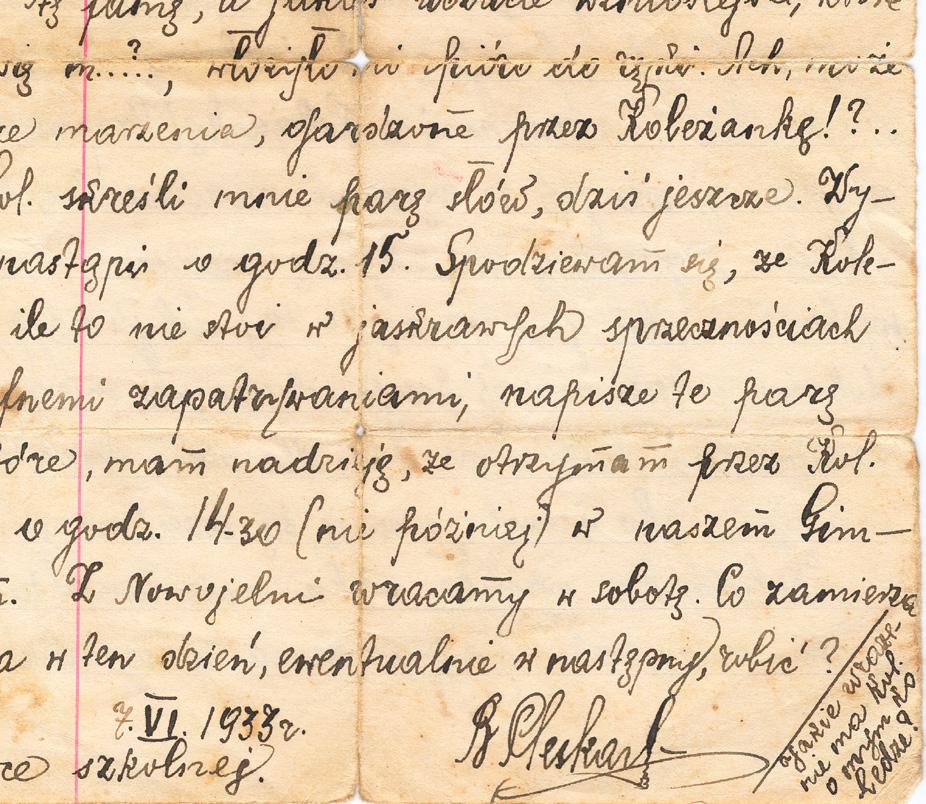 się m....?., włożyło mi pióro do ręki. Ach, może
marzenia, gardzone przez Koleżankę!?..
ol. skreśli mnie parę słów, dziś jeszcze. Wy-
nastąpi o godz. 15. Spodziewam się, że Kole-
ile to nie stoi w jaskrawych sprzecznościach
zapatrywaniami, napisze te parę
óre, mam nadzieję, że otrzymam przez Kol.
o godz. 14-30 (nie później) w naszem Gim-
Z Nowojelni wracamy w sobotę. Co zamierza
a w ten dzień, ewentualnie w następny, robić?
7.VI. 1933r.
ce szkolnej.
B Pleskacz
nie ma Kol.
o mym Ko